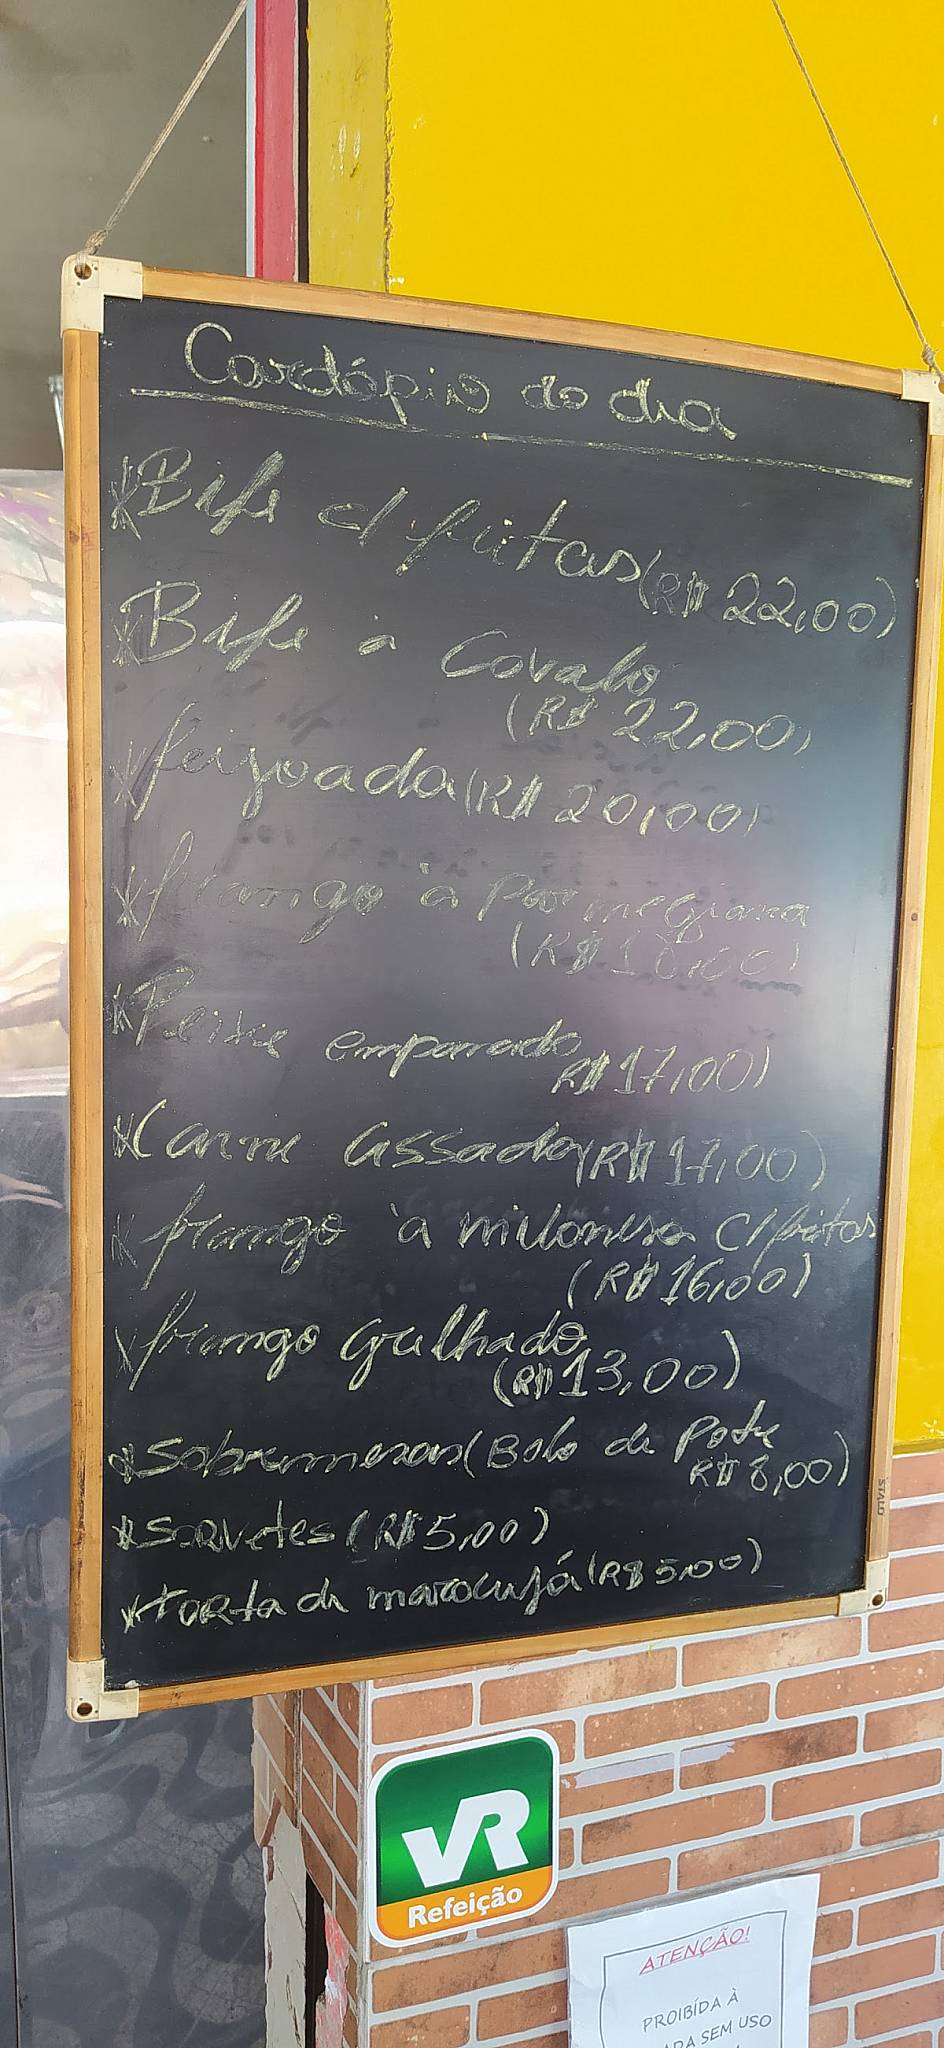 Cardápio do dia
*Bife c/ fritas (R$ 22,00)
*Bife à Cavalo
(R$ 22,00)
*feijoada (R$ 20,00)
*frango à Parmegiana
(R$
*Peixe emparrado
R$ 17,00)
*Carne assada (R$ 17,00)
*frango à milanesa c/fritas
(R$ 16,00)
*frango Grelhado
(R$ 13,00)
*Sobremesas (Bolo de Pote
R$ 8,00)
*Sorvetes (R$ 5,00)
*torta de maracujá (R$ 5,00)
VR
Refeição
ATENÇÃO!
PROIBÍDA À
ADA SEM USO